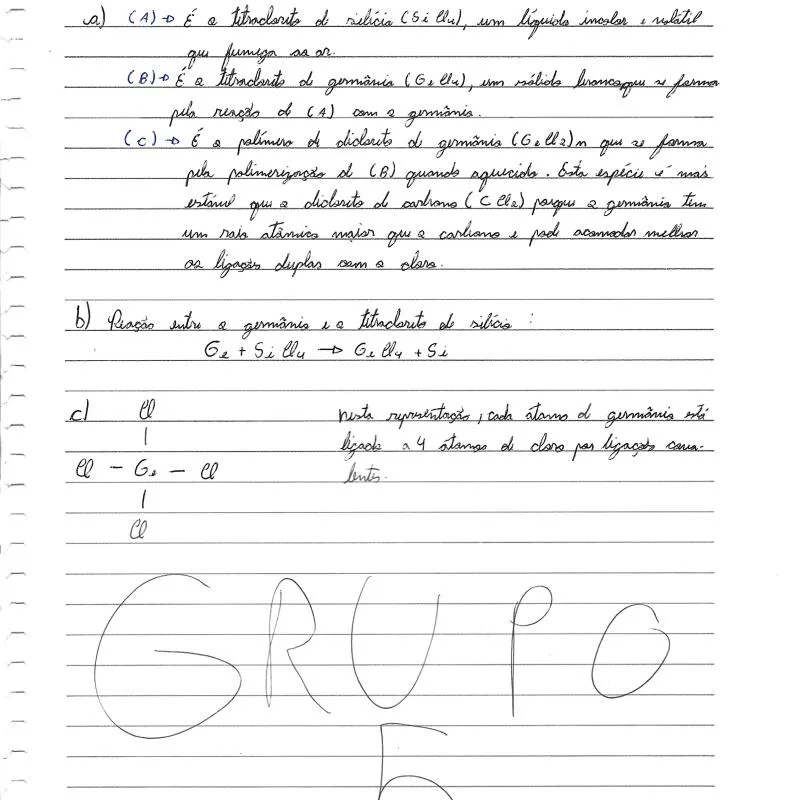 a) (A) → É o tetracloreto de silício (SiCl4), um líquido incolor e volátil
que fumega ao ar.
(B) → É o tetracloreto de germânio (GeCl4), um sólido branco que se forma
pela reação de (A) com o germânio.
(C) → É o polímero de dicloreto de germânio (GeCl2)n que se forma
pela polimerização de (B) quando aquecido. Esta espécie é mais
estável que o dicloreto de carbono (CCl2) porque o germânio tem
um raio atômico maior que o carbono e pode acomodar melhor
as ligações duplas com o cloro.
b) Reação entre o germânio e o tetracloreto de silício:
Ge + SiCl4 → GeCl4 + Si
c) Cl
|
Cl - Ge - Cl
|
Cl
nesta representação, cada átomo de germânio está
ligado a 4 átomos de cloro por ligações cova-
lentes.
GRUPO
5